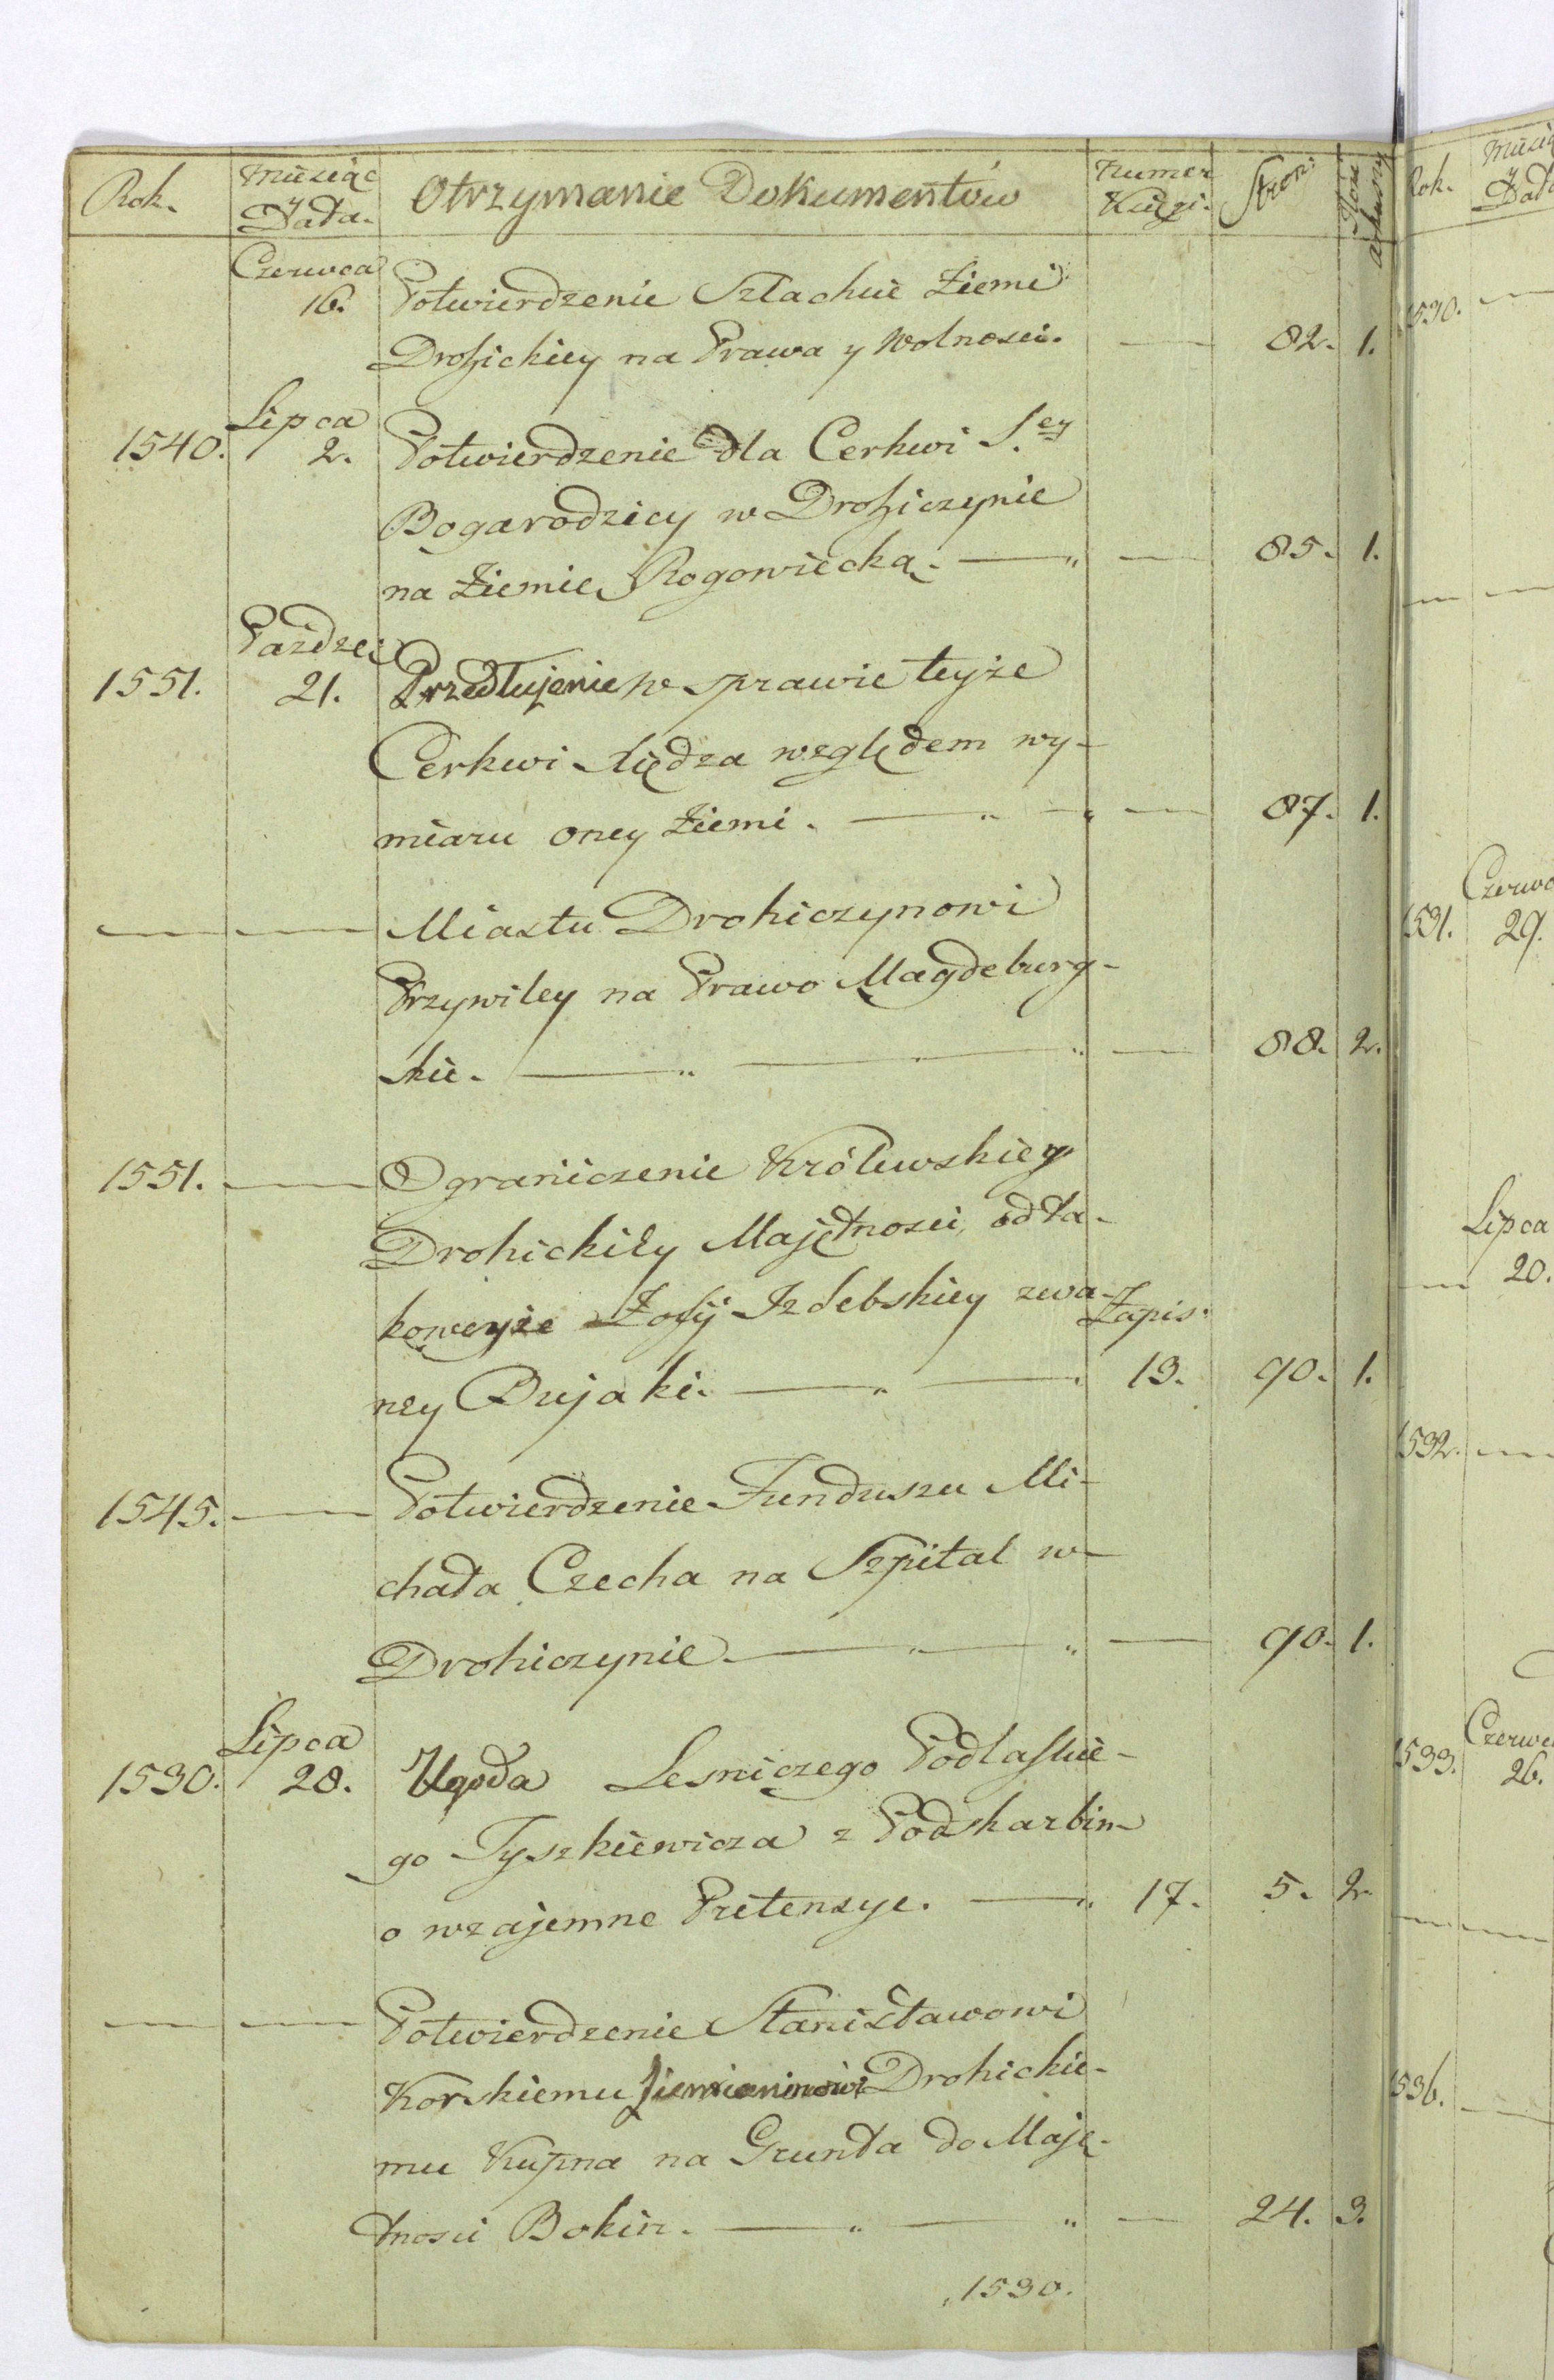 Rok. Miesiąc y Data. Otrzymanie Dokumentów Numer Księgi. Stron: Ilość arkuszy
Czerwca
16. Potwierdzenie Szlachcie Ziemi
Drohickiey na Prawa y Wolnosci. — 82. 1.
Lipca
1540. 2. Potwierdzenie dla Cerkwi S.ey
Bogarodzicy w Drohiczynie
na Ziemię Rogowiecką. — 85. 1.
Pazdzer
1551. 21. Przedłujenie w sprawie teyże
Cerkwi Xiędza względem wy-
miaru oney Ziemi. — 87. 1.
— — Miastu Drohiczynowi
Przywiley na Prawo Magdeburg-
skie. — 88. 2.
1551. — Ograniczenie Królewskiey
Drohickiey Majętnosci, od ta-
koweyże Zofij Izdebskiey zwa-
Zapis:
ney Bujaki. — 13. 90. 1.
1545. — Potwierdzenie Funduszu Mi-
chała Czecha na Szpital w
Drohiczynie — 90. 1.
Lipca
1530. 28. Ugoda Lesniczego Podlaskie-
go Tyszkiewicza z Podskarbim
o wzajemne Pretensye. — 17. 5. 2.
— — Potwierdzenie Stanisławowi
Korskiemu Ziemianinowi Drohickie-
mu Kupna na Grunta do Maję-
tnosci Bokin. — 24. 3.
1530.
Rok.
Data
1530. —
Czerwc
1531. 29.
Lipca
— 20.
1532. —
Czerwc
1533. 26.
1536. —